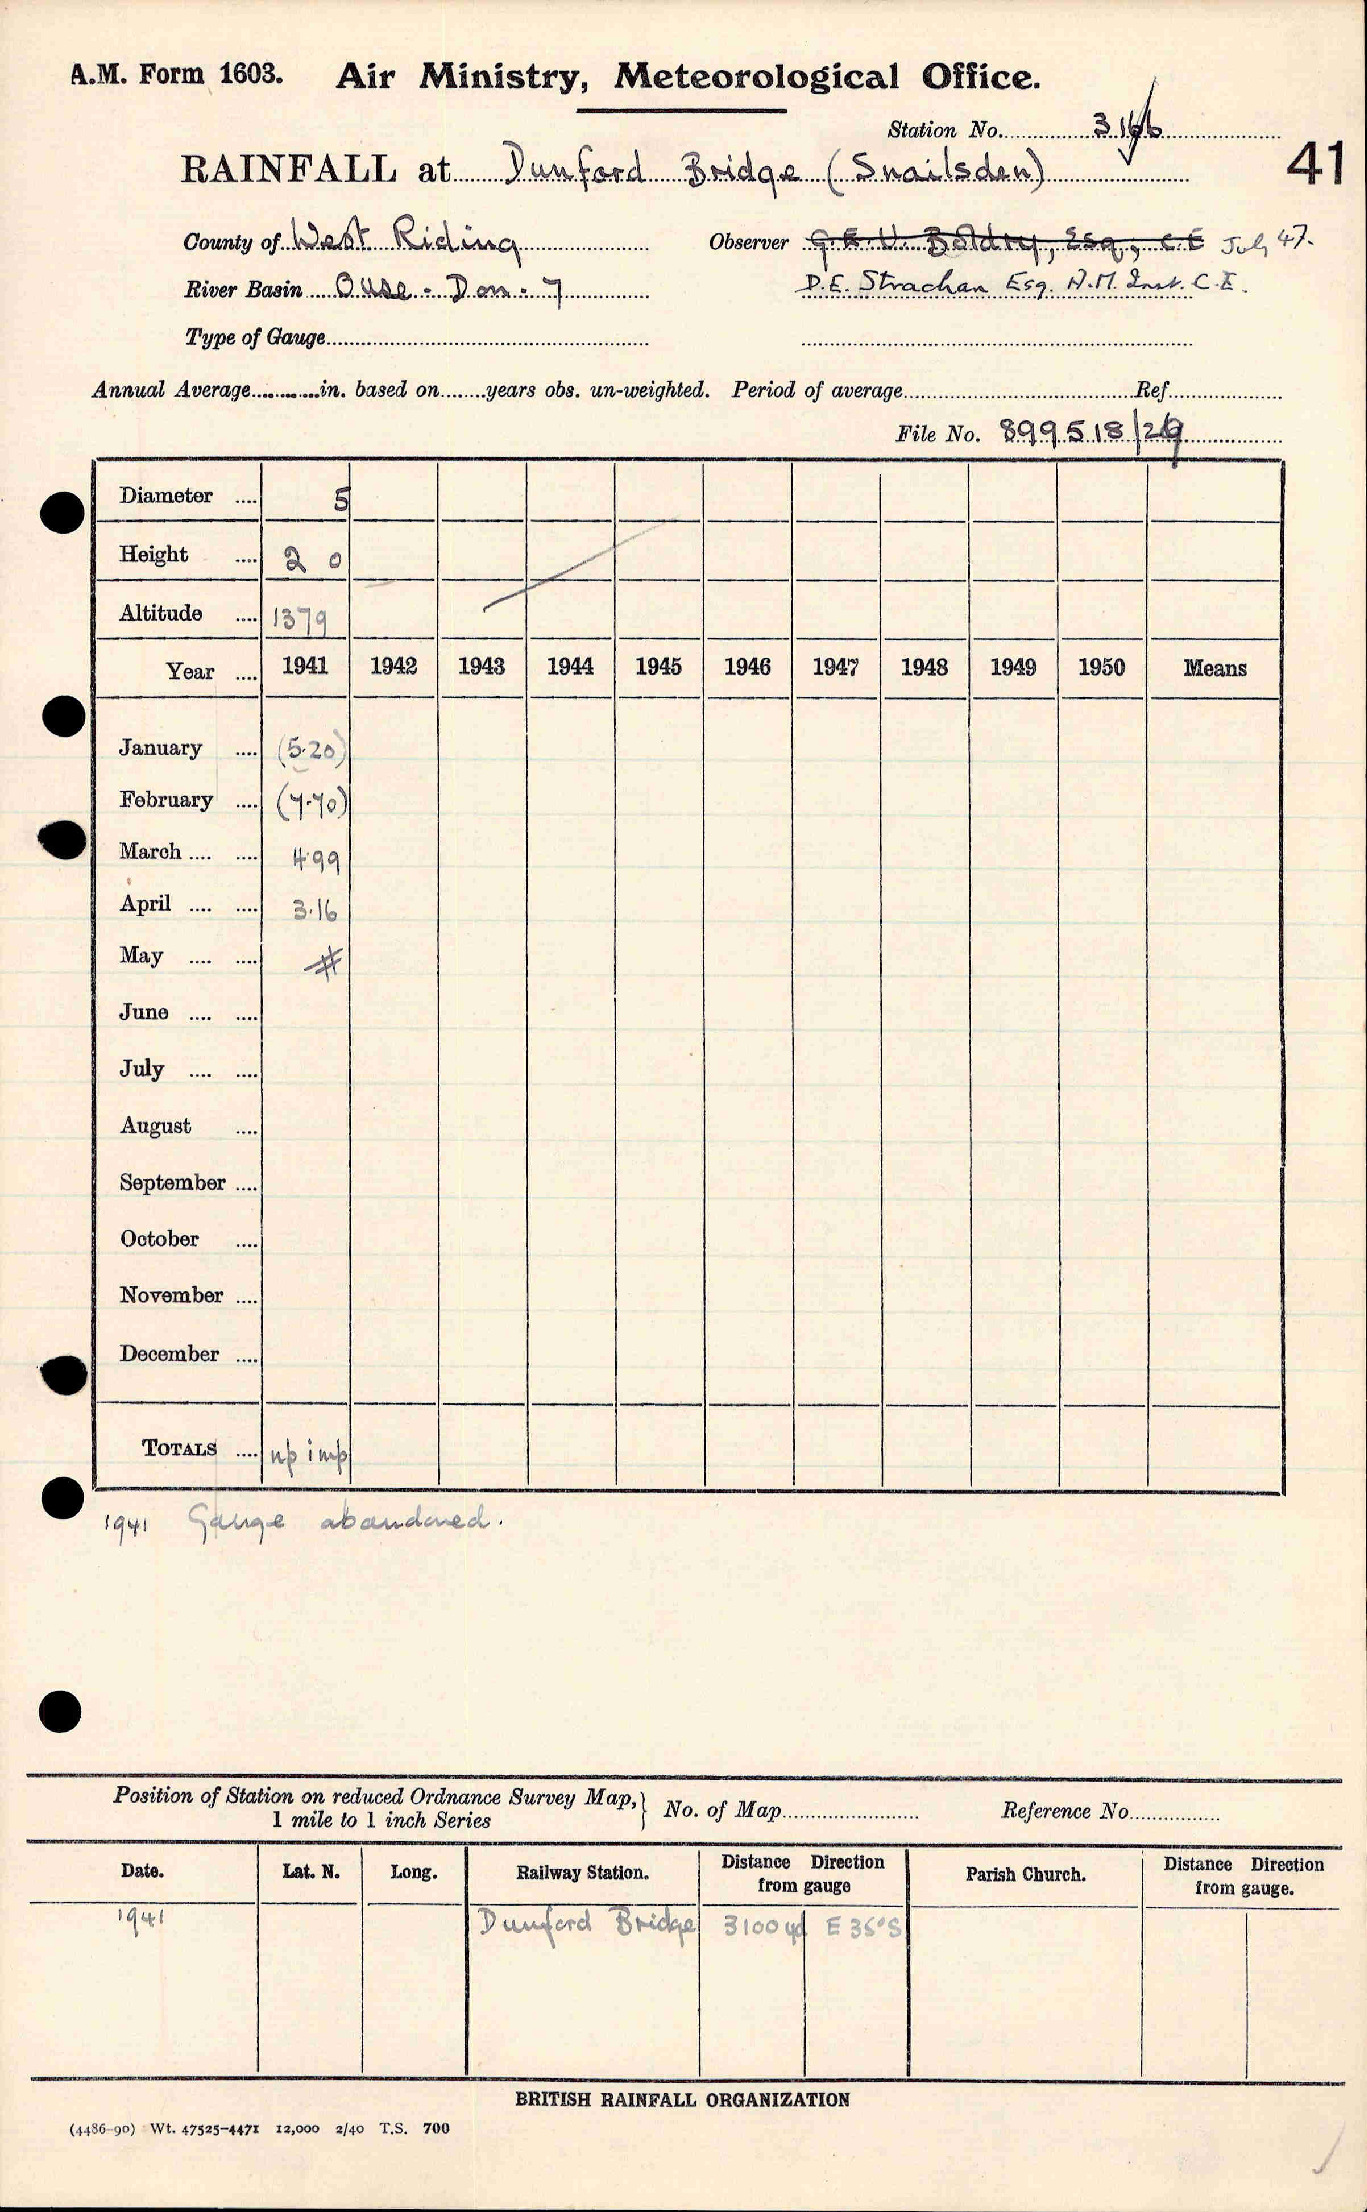 A.M. Form 1603. Air Ministry, Meteorological Office.
Station No. 3166
RAINFALL at Dunford Bridge (Snailsden) 41
County of West Riding Observer G.E.V. Boldry, Esq, C.E July 47.
River Basin Ouse - Don - 7 D.E. Strachan Esq. A.M. Inst. C.E.
Type of Gauge
Annual Average in. based on years obs. un-weighted. Period of average Ref
File No. 899518/29
Diameter .... 5
Height .... 2 0
Altitude .... 1379
Year .... 1941 1942 1943 1944 1945 1946 1947 1948 1949 1950 Means
January .... (5.20)
February .... (7.70)
March .... .... 4.99
April .... .... 3.16
May .... .... #
June .... ....
July .... ....
August ....
September ....
October ....
November ....
December ....
TOTALS .... np imp
1941 Gauge abandoned.
Position of Station on reduced Ordnance Survey Map, 1 mile to 1 inch Series } No. of Map Reference No.
Date. Lat. N. Long. Railway Station. Distance Direction from gauge Parish Church. Distance Direction from gauge.
1941 Dunford Bridge 3100 yd E 35° S
BRITISH RAINFALL ORGANIZATION
(4486-90) Wt. 47525-4471 12,000 2/40 T.S. 700